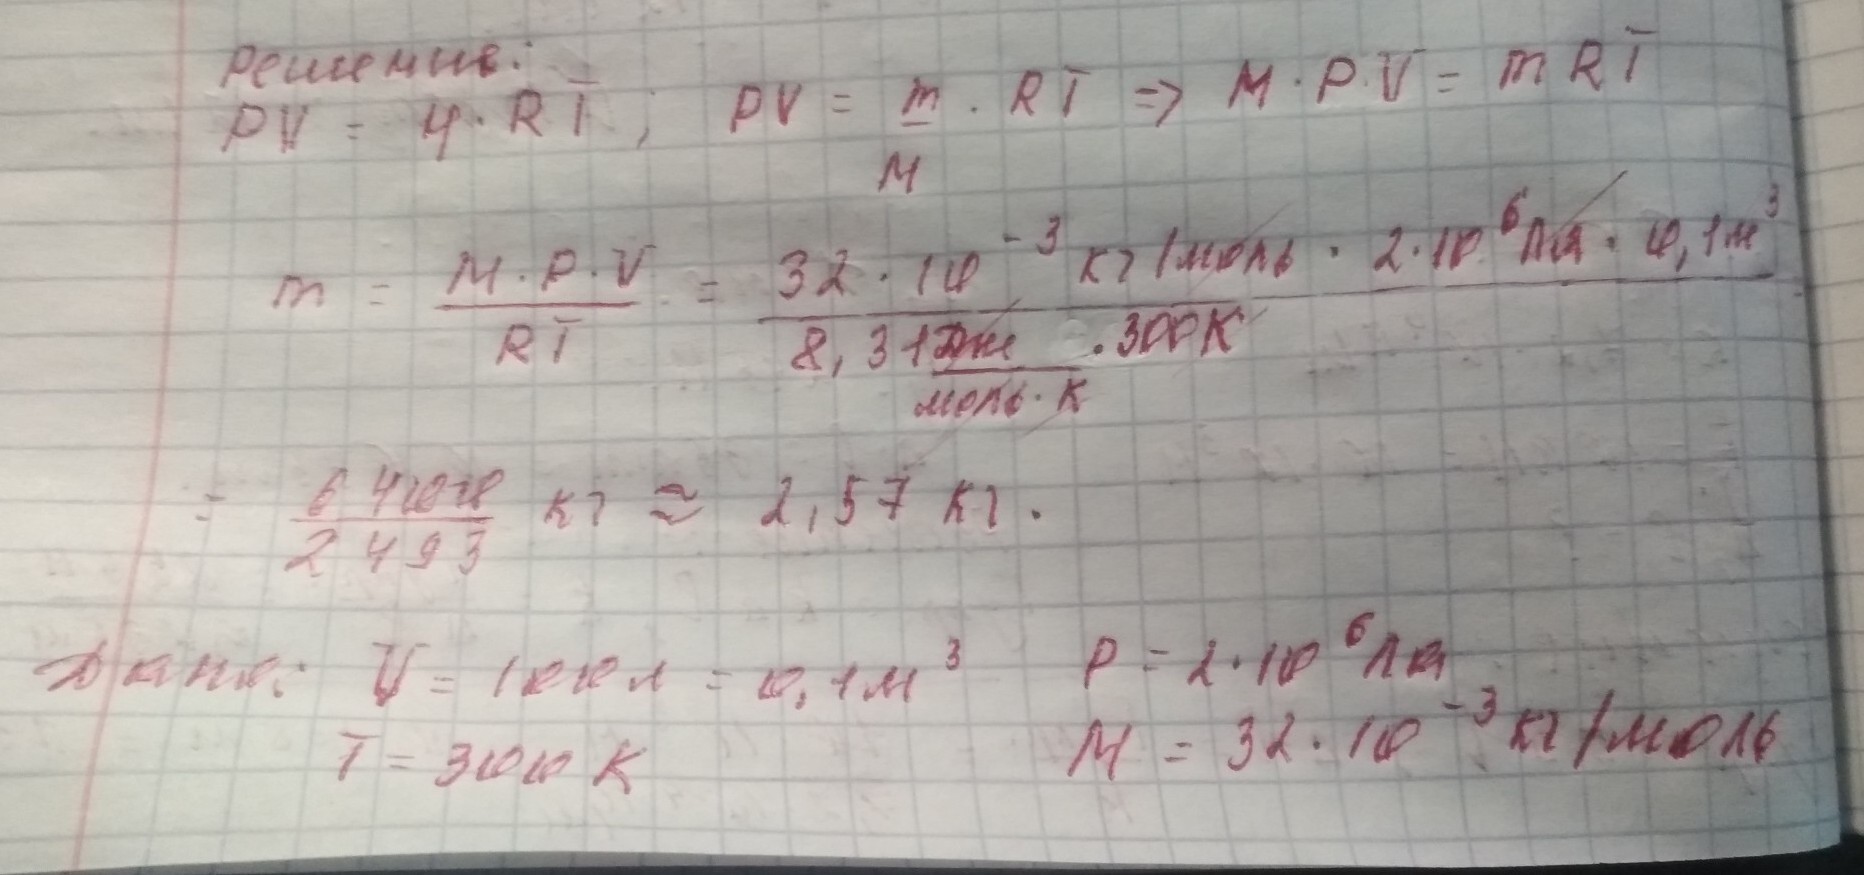 Решение:
PV = ч · RT ; PV = m/M · RT => M · P · V = m RT
m = M · P · V / RT = 32 · 10⁻³ кг/моль · 2 · 10⁶ Па · 0,1м³ / 8,31 Дж/моль · К · 300К
= 6400/2493 кг ≈ 2,57 кг.
Дано: V = 100л = 0,1м³ P = 2 · 10⁶ Па
T = 300 К M = 32 · 10⁻³ кг/моль